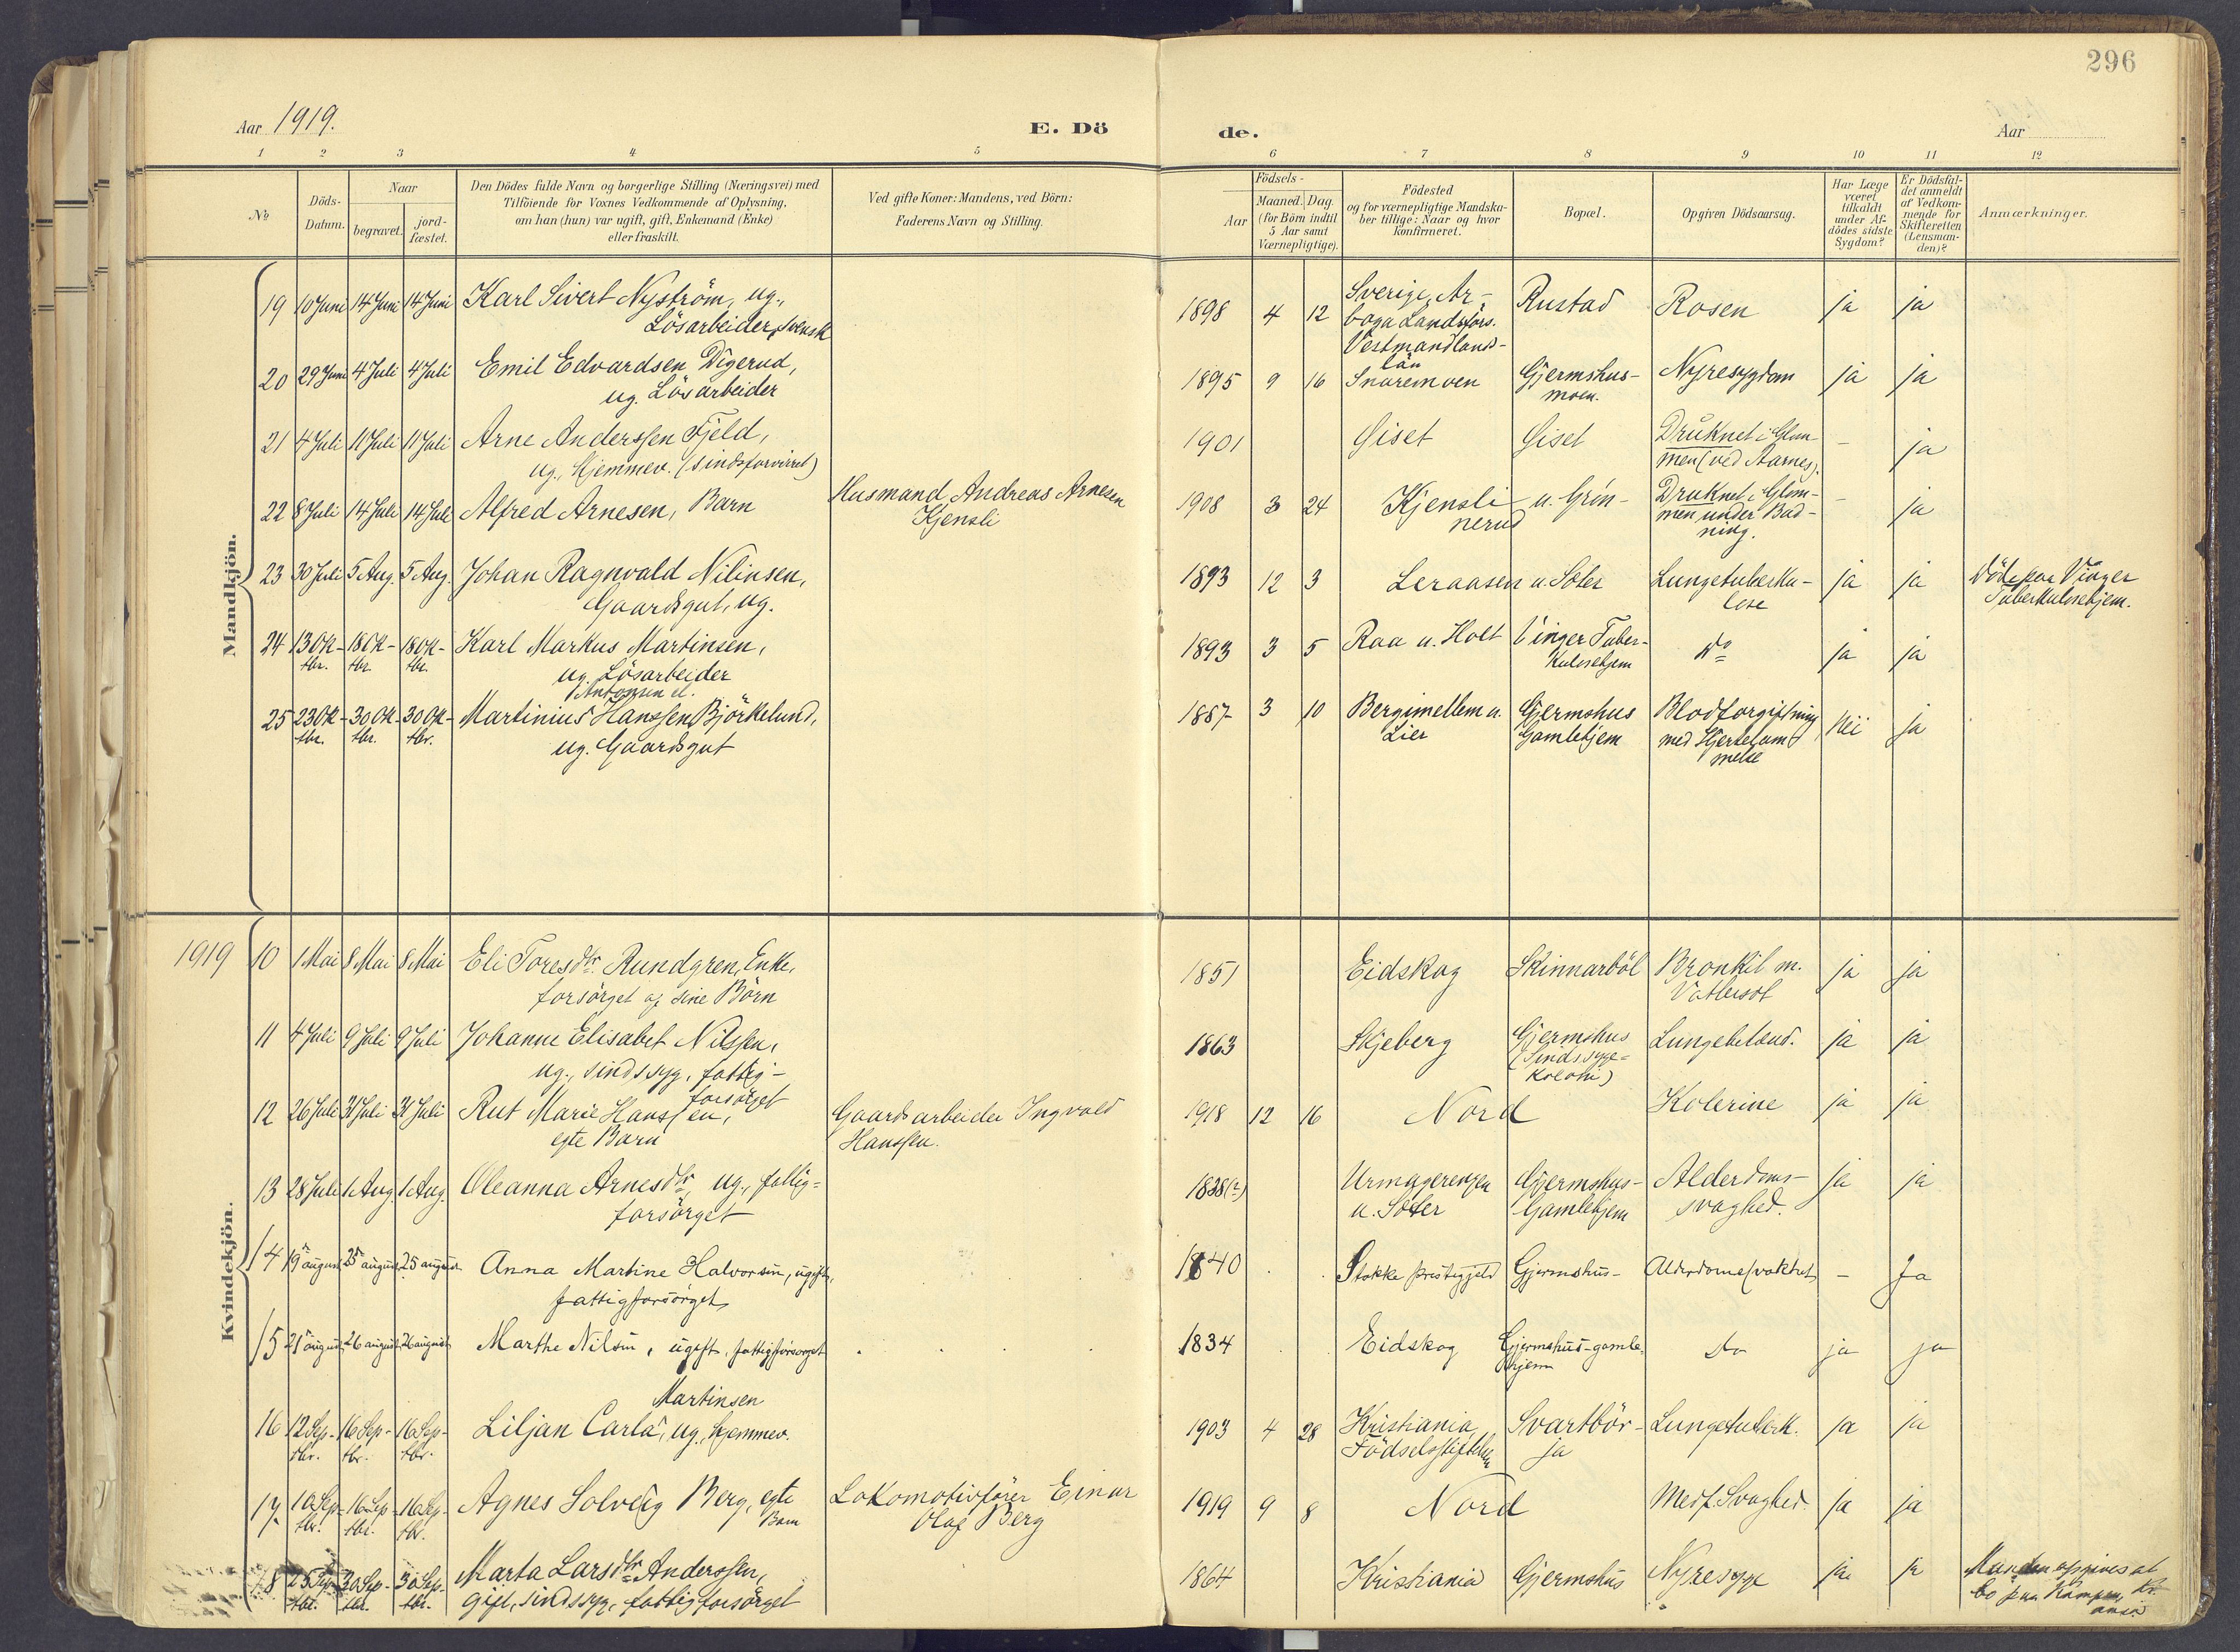 296
Aar 1919.
E. Dö
de.
Aar
1 2 3 4 5
6 7 8 9 10 11 12
№
Döds-
Datum.
Naar
begravet.
jord-
fæstet.
Den Dödes fulde Navn og borgerlige Stilling (Næringsvei) med
Tilföiende for Voxnes Vedkommende af Oplysning,
om han (hun) var ugift, gift, Enkemand (Enke)
eller fraskilt.
Ved gifte Koner: Mandens, ved Börn:
Faderens Navn og Stilling.
Födsels-
Aar
Maaned. Dag.
(for Börn indtil
5 Aar samt
Værnepligtige).
Födested
og for værnepligtige Mandska-
ber tillige: Naar og hvor
konfirmeret.
Bopæl.
Opgiven Dödsaarsag.
Har Læge
været
tilkaldt
under Af-
dödes sidste
Sygdom?
Er Dödsfal-
det anmeldt
af Vedkom-
mende for
Skifteretten
(Lensman-
den)?
Anmærkninger.
Mandkjön.
19 10 Juni 14 Juni 14 Juni Karl Sivert Nyström, ug.,
Lösarbeider, svensk
1898 4 12 Sverige, Ar-
boga Landsförs.
Vestmandlands-
län
Rustad Rosen ja ja
20 29 Juni 4 Juli 4 Juli Emil Edvardsen Digerud,
ug. Lösarbeider
1895 9 16 Snaremoen Gjermshus-
moen.
Nyresygdom ja ja
21 4 Juli 11 Juli 11 Juli Arne Anderssen Fjeld,
ug., hjemmev. (sindsforvirret)
1901 Siset Siset Druknet i Glom-
men (ved Aarnes).
- ja
22 8 Juli 14 Juli 14 Juli Alfred Arnesen, Barn
Husmand Andreas Arnesen
Kjensli
1908 3 24 Kjensli u. Grin-
nerud
Druknet i Glom-
men under Bad-
ning.
- ja
23 30 Juli 5 Aug. 5 Aug. Johan Ragnvald Nilinsen,
Gaardsgut, ug.
1893 12 3 Leraasen u. Soler Lungetuberku-
lose
ja ja Död paa Vinger
Tuberkulosehjem.
24 13 Ok- 18 Ok- 18 Ok- Karl Markus Martinsen,
tbr. tbr. tbr. ug. Lösarbeider
1893 3 5 Raa u. Holt Vinger Tuber-
kulosehjem
Do ja ja
Antonsen el.
25 23 Ok- 30 Ok- 30 Ok- Martinius Hanssen Björkelund,
tbr. tbr. tbr. ug. Gaardsgut
1887 3 10 Bergimellem u.
Lier
Gjermshus
Gamlehjem
Blodforgiftning
med Hjertelam-
melse
Nei ja
Kvindekjön.
1919 10 1 Mai 8 Mai 8 Mai Eli Toresdtr. Rundgren, Enke,
forsörget af sine Börn
1851 Eidskog Skinnarböl Bronkit m.
Vattersot
ja ja
11 4 Juli 9 Juli 9 Juli Johanne Elisabet Nilssen,
ug., sindssyg, fattig-
forsörget
1863 Skjeberg Gjermshus
(Sindssyge-
koloni)
Lungebetænd. ja ja
12 26 Juli 31 Juli 31 Juli Rut Marie Hanssen,
egte Barn
Gaardsarbeider Ingvald
Hanssen.
1918 12 16 Nord Kolerine ja ja
13 28 Juli 1 Aug. 1 Aug. Oleanna Arnesdtr, ug., fattig-
forsörget
1838(?) Urmagerengen
u. Soter
Gjermshus-
Gamlehjem
Alderdoms-
svaghed.
ja ja
14 19 august 25 august 25 august Anna Martine Halvorsen, ugift,
fattigforsörget
1840 Stokke prestegjeld Gjermshus- Alderdomssvakhet - Ja
15 21 august 26 august 26 august Marthe Nilsen, ugift, fattigforsörget
1834 Eidskog Gjermshus-gamle-
hjem
Do ja ja
Martinsen
16 12 Sep- 16 Sep- 16 Sep- Liljan Carla, ug., hjemmev.
tbr. tbr. tbr.
1903 4 28 Kristiania
Födselsstiftelse
Svartbör-
ja
Lungetuberk. ja ja
17 10 Sep- 16 Sep- 16 Sep- Agnes Solveig Berg, egte
tbr. tbr. tbr. Barn
Lokomotivförer Einar
Olaf Berg
1919 9 8 Nord Medf. Svaghed. ja ja
18 25 Sep- 30 Sep- 30 Sep- Marta Larsdtr Anderssen,
tbr. tbr. tbr. gift, sindssyg, fattigforsörget
1864 Kristiania Gjermshus Nyresyge ja ja Manden opgives at
bo paa Kampen,